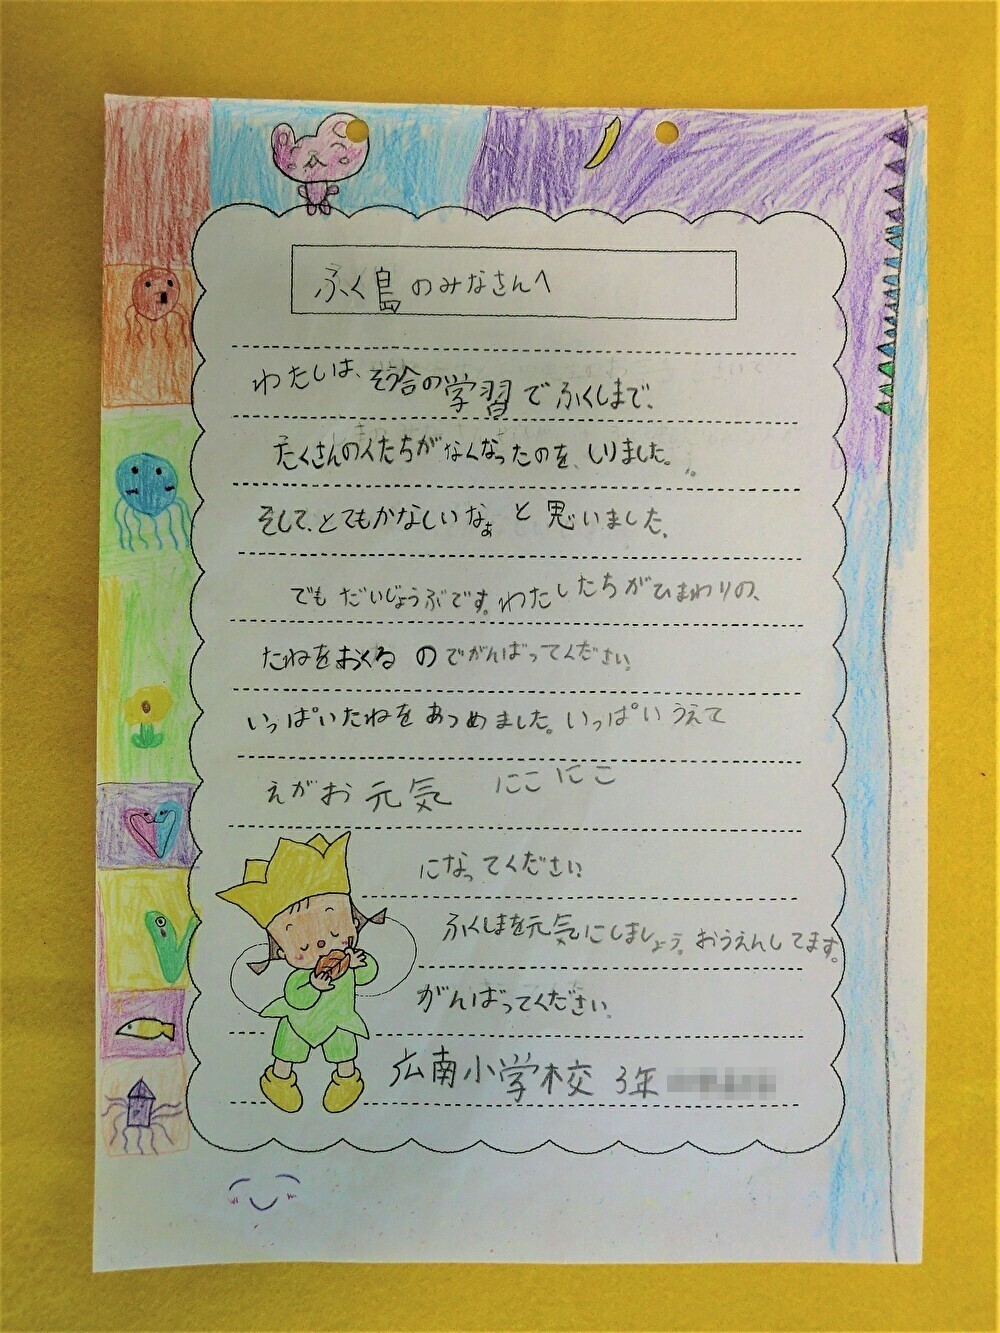 ふく島のみなさんへ
わたしは、そう合の学習でふくしまで、
たくさんの人たちがなくなったのを、しりました。
そして、とてもかなしいなぁと思いました。
でもだいじょうぶです。わたしたちがひまわりの、
たねをおくるのでがんばってください。
いっぱいたねをあつめました。いっぱいうえて
えがお元気 にこにこ
になってください
ふくしまを元気にしましょう。おうえんしてます。
がんばってください。
広南小学校 3年